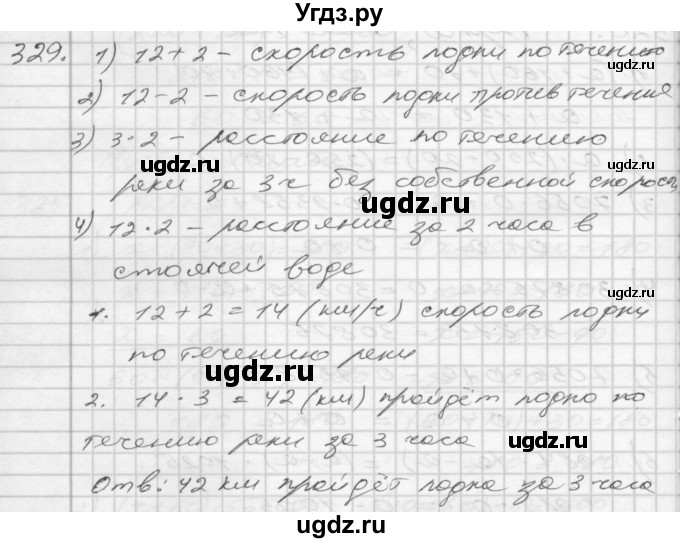 Угдз.ру
329. 1) 12+2 - скорость лодки по течению
ugdz.ru
2) 12-2 - скорость лодки против течения
3) 3·2 - расстояние по течению
ugdz.ru
ugdz.ru
реки за 3ч без собственной скорост
ugdz.ru
4) 12·2 - расстояние за 2 часа в
стоячей воде
ugdz.ru
1. 12+2=14 (км/ч) скорость лодки
по течению реки
ugdz.ru
2. 14·3=42 (км) пройдёт лодка по
течению реки за 3 часа
ugdz.ru
ugdz.ru
Отв: 42 км пройдёт лодка за 3 часа
ugdz.ru